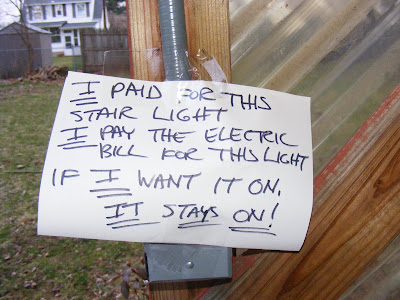 I PAID FOR THIS
STAIR LIGHT
I PAY THE ELECTRIC
BILL FOR THIS LIGHT
IF I WANT IT ON,
IT STAYS ON!